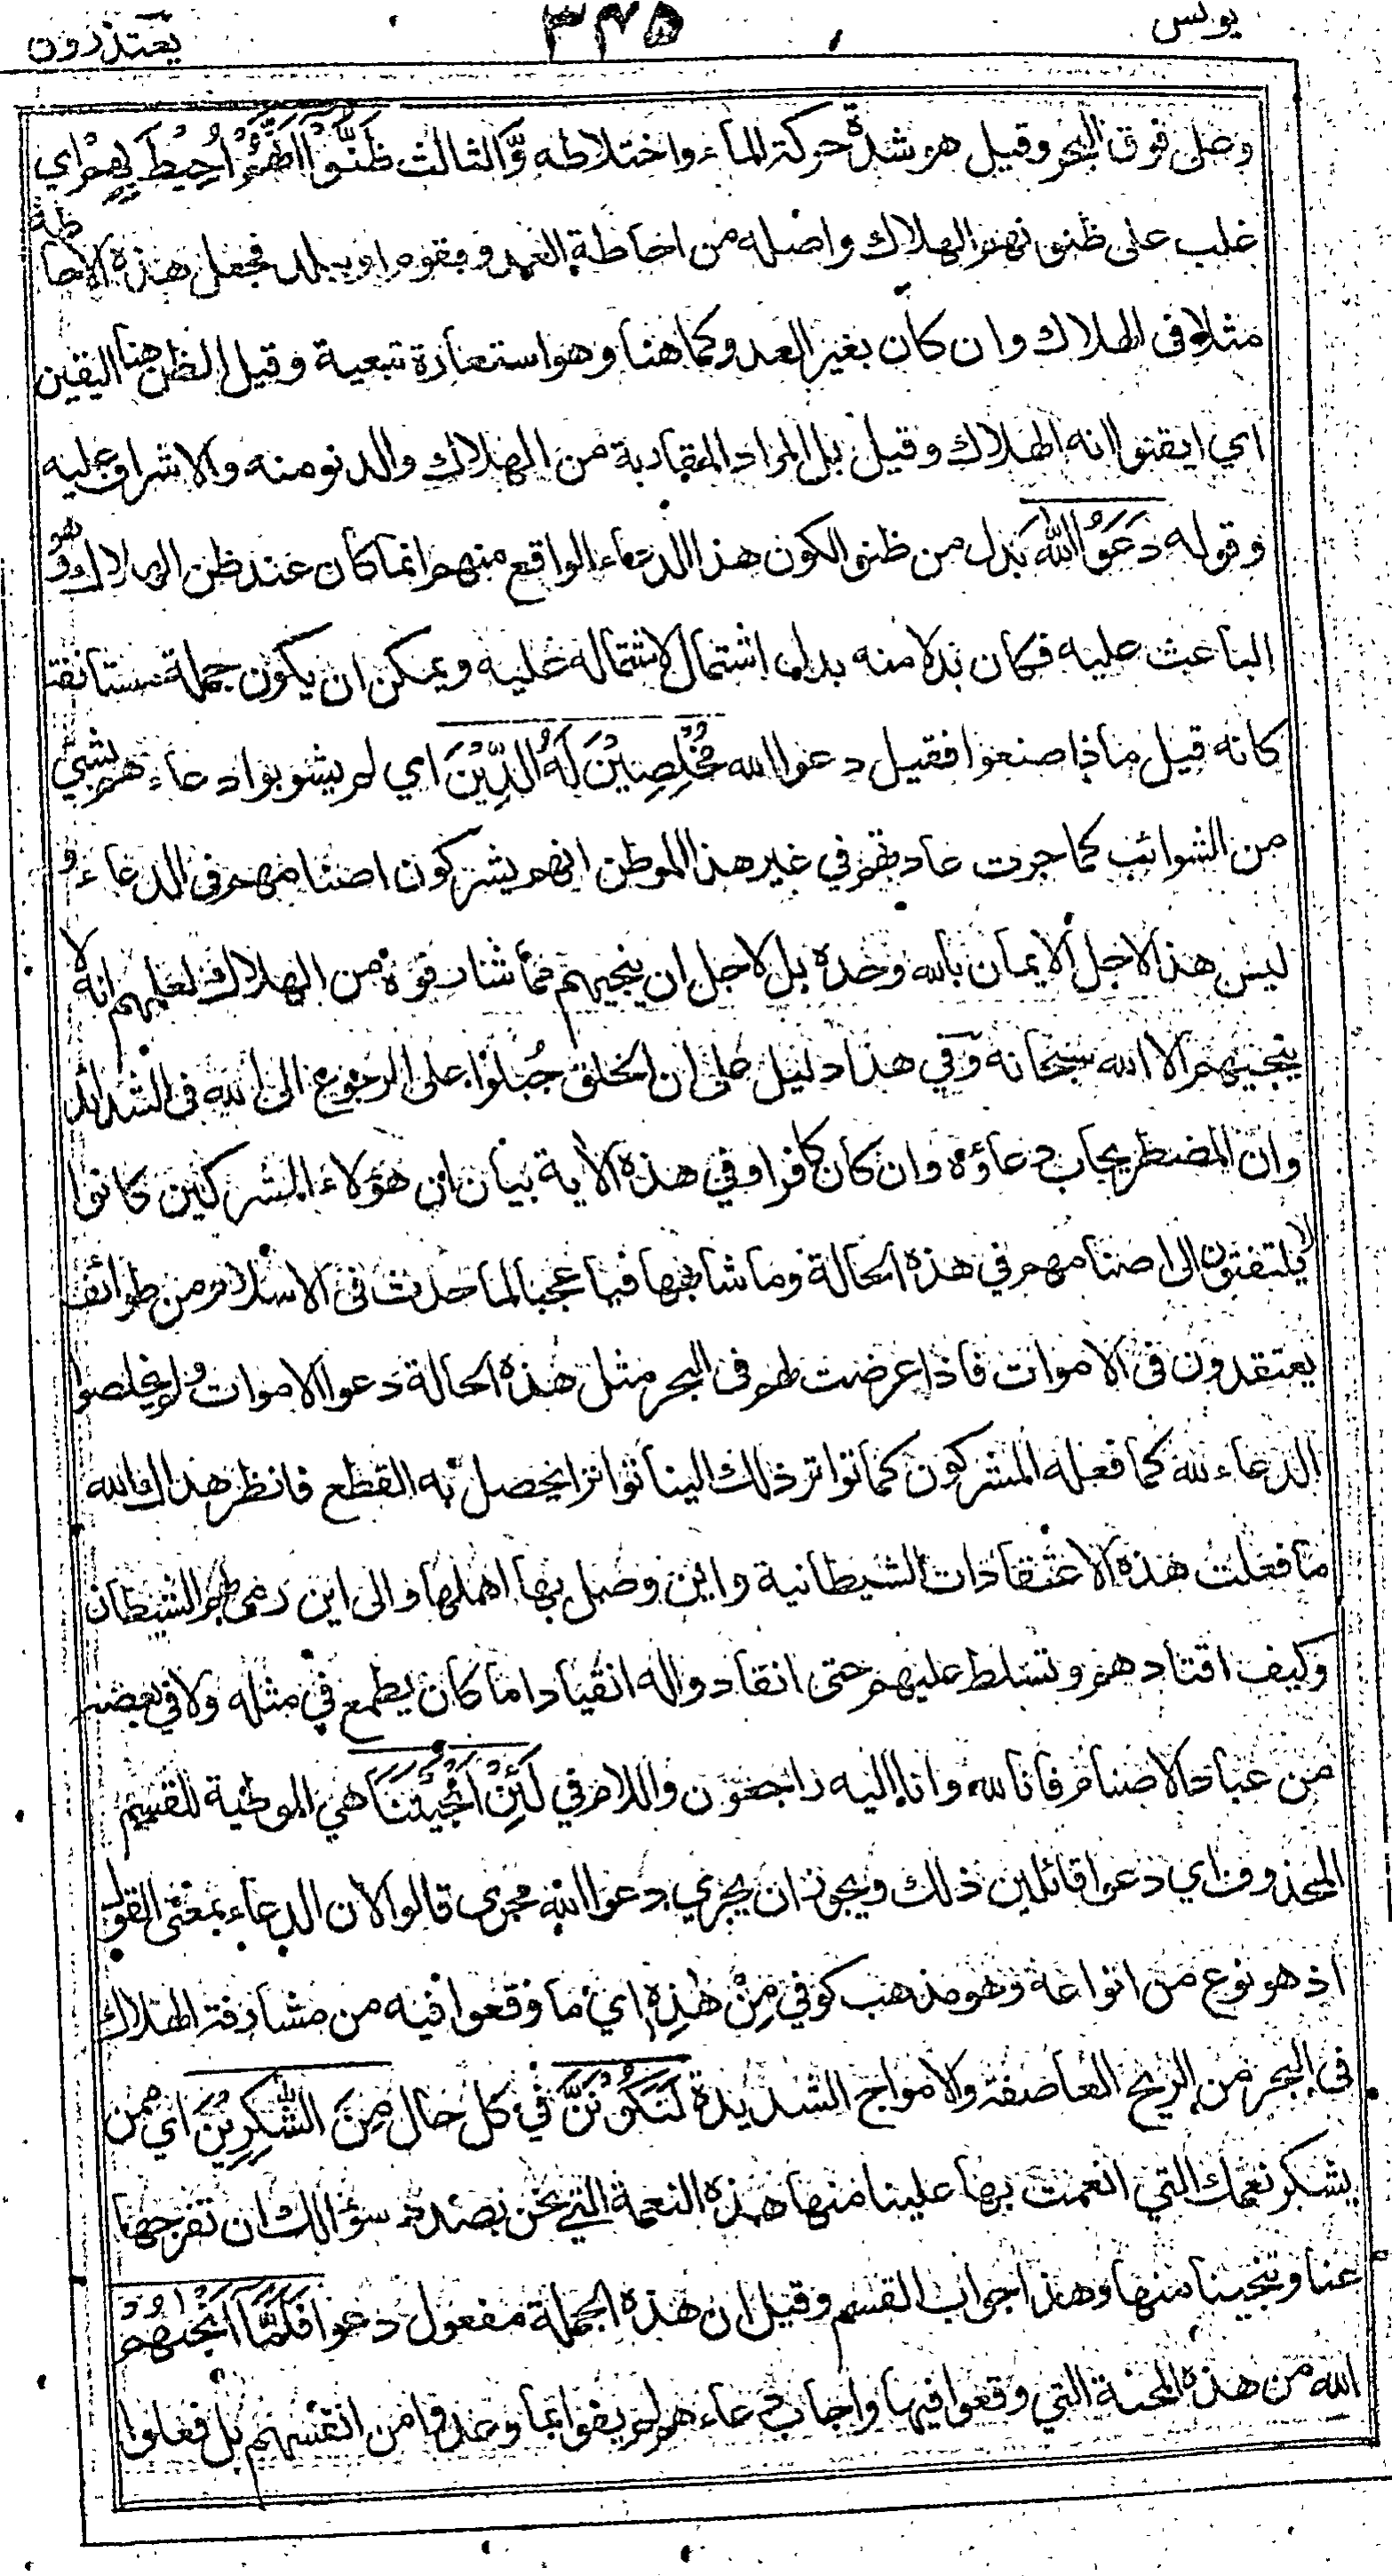 يونس ٣٤٥ يعتذرون
وعلى فوق البحر وقيل هو شدة حركة الماء واختلاطه وَّالثالث ظَنُّوْٓا اَنَّهُمْ اُحِيْطَ بِهِمْ اي
غلب على ظنونهم الهلاك واصله من احاطة العدو وبقوم او ببلد فجعل هذه الاحاطة
مثلا فى الهلاك وان كان بغير العدو كما هنا وهو استعارة تبعية وقيل الظن هنا اليقين
اي ايقنوا انه الهلاك وقيل بل المراد المقاربة من الهلاك والدنو منه والاشراف عليه
وقوله دَعَوُا اللّٰهَ بدل من ظنوا لكون هذا الدعاء الواقع منهم انما كان عند ظن الهلاك وهو
الباعث عليه فكان بدلا منه بدل اشتمال لاشتماله عليه ويمكن ان يكون جملة مستانفة
كانه قيل ماذا صنعوا فقيل دعوا الله مُخْلِصِيْنَ لَهُ الدِّيْنَ اي لم يشوبوا دعاءهم بشئ
من الشوائب كما جرت عادتهم في غير هذا الموطن انهم يشركون اصنامهم فى الدعاء و
ليس هذا لاجل الايمان بالله وحده بل لاجل ان ينجيهم مما شارفوه من الهلاك لعلمهم انه لا
ينجيهم الا الله سبحانه وفي هذا دليل على ان الخلق جُبلوا على الرجوع الى الله فى الشدائد
وان المضطر يجاب دعاؤه وان كان كافرا وفي هذه الاية بيان ان هؤلاء المشركين كانوا
لا يلتفتون الى اصنامهم في هذه الحالة وما شابهها فيا عجبا لما حدث فى الاسلام من طوائف
يعتقدون فى الاموات فاذا عرضت لهم فى البحر مثل هذه الحالة دعوا الاموات ولم يخلصوا
الدعاء لله كما فعله المشركون كما تواتر ذلك الينا تواترا يحصل به القطع فانظر هداك الله
ما فعلت هذه الاعتقادات الشيطانية واين وصل بها اهلها والى اين رمى بهم الشيطان
وكيف اقتادهم وتسلط عليهم حتى انقادوا له انقيادا ما كان يطمع في مثله ولا في بعضه
من عباد الاصنام فانا لله وانا اليه راجعون واللام في لَئِنْ اَنْجَيْتَنَا هي الموطئة للقسم
المحذوف اي دعوا قائلين ذلك ويجوز ان يجري دعوا الله مجرى قالوا لان الدعاء بمعنى القول
اذ هو نوع من انواعه وهو مذهب كوفي مِنْ هٰذِهٖ اي ما وقعوا فيه من مشارفة الهلاك
فى البحر من الريح العاصفة والامواج الشديدة لَنَكُوْنَنَّ في كل حال مِنَ الشّٰكِرِيْنَ اي ممن
يشكر نعمك التي انعمت بها علينا منها هذه النعمة التي نحن بصدد سؤالك ان تفرجها
عنا وتنجينا منها وهذا جواب القسم وقيل ان هذه الجملة مفعول دعوا فَلَمَّآ اَنْجٰىهُمْ
الله من هذه المحنة التي وقعوا فيها واجاب دعاءهم لم يفوا بما وعدوا من انفسهم بل فعلوا